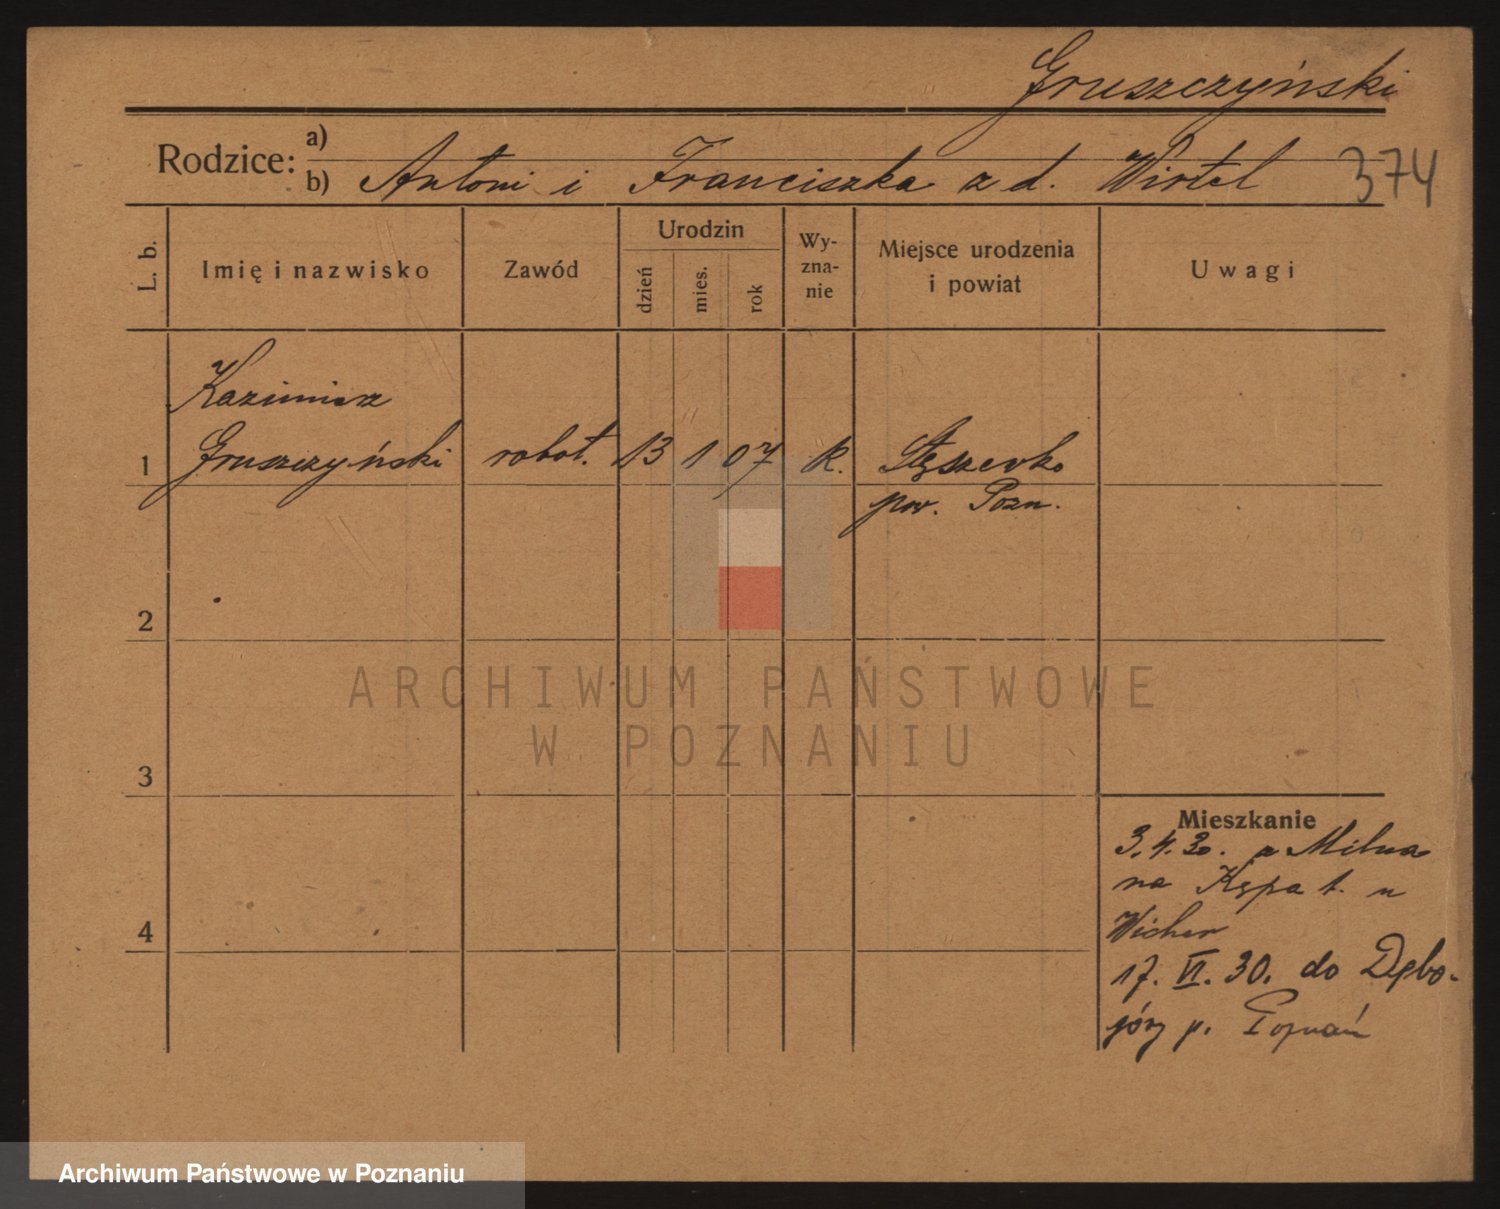 Gruszczyński
Rodzice: a)
b) Antoni i Franciszka z d. Wirtel 374
L. b. Imię i nazwisko Zawód Urodzin dzień mies. rok Wy-zna-nie Miejsce urodzenia i powiat Uwagi
Kazimierz
1 Gruszczyński robot. 13 1 07 k. Stęszewko
pow. Pozn.
2
ARCHIWUM PAŃSTWOWE
W POZNANIU
3
Mieszkanie
3.4.30. z
na Kępa t. u
4 Wicher
17. VI. 30. do Dębo-
góry p. Poznań
Archiwum Państwowe w Poznaniu